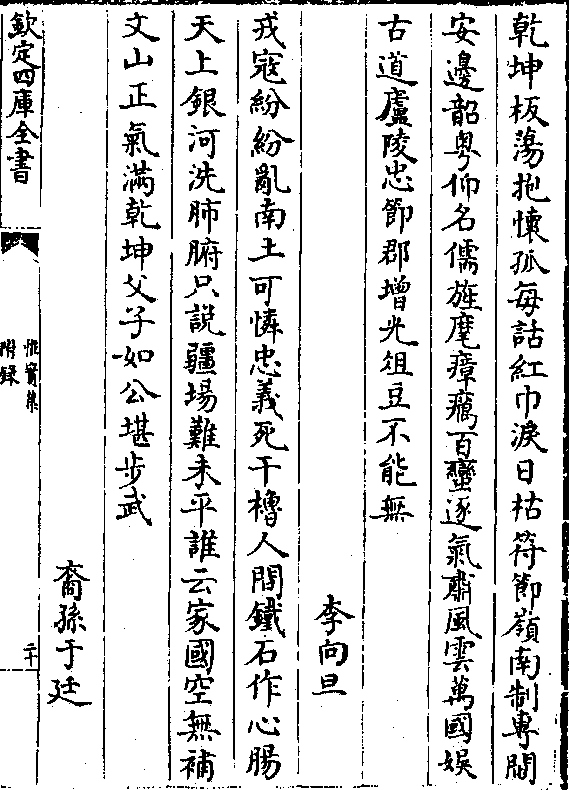 乾坤板蕩抱懐孤每詁紅巾淚日枯符節嶺南制專閫
安邊韶粤仰名儒旌麾瘴癘百蠻逐氣肅風雲萬國娱
古道廬陵忠節郡增光俎豆不能無
李向旦
戎寇紛紛亂南土可憐忠義死干櫓人間鐵石作心腸
天上銀河洗肺腑只説疆場難未平誰云家國空無補
文山正氣滿乾坤父子如公堪步武
裔孫于廷
欽定四庫全書
惟實集
附録
二十